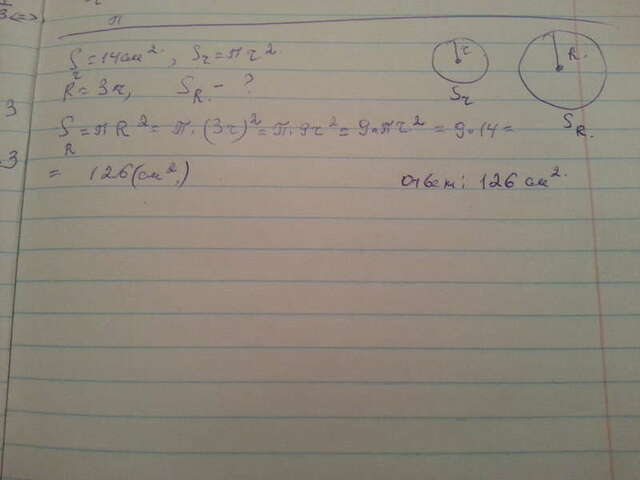 3<=>
π
S_r = 14 см², S_r = πr².
R = 3r, S_R - ?
r
R.
S_r
S_R.
3
S_R = πR² = π·(3r)² = π·9r² = 9·πr² = 9·14 =
.3
= 126 (см²)
ответ: 126 см².